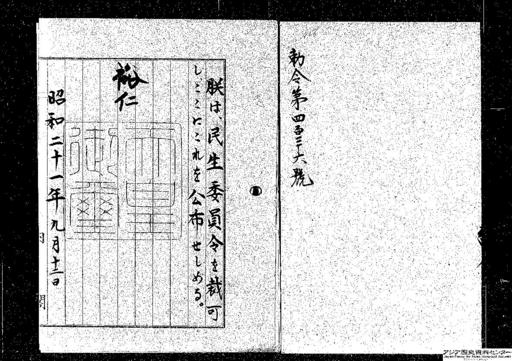 勅令第四百二十六號
朕は、民生委員令を裁可
し、ここにこれを公布せしめる。
裕仁
天皇
御璽
昭和二十一年九月十三日
内閣
アジア歴史資料センター